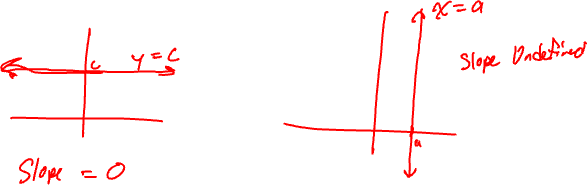 y = c
c
Slope = 0
x = a
Slope Undefined
a